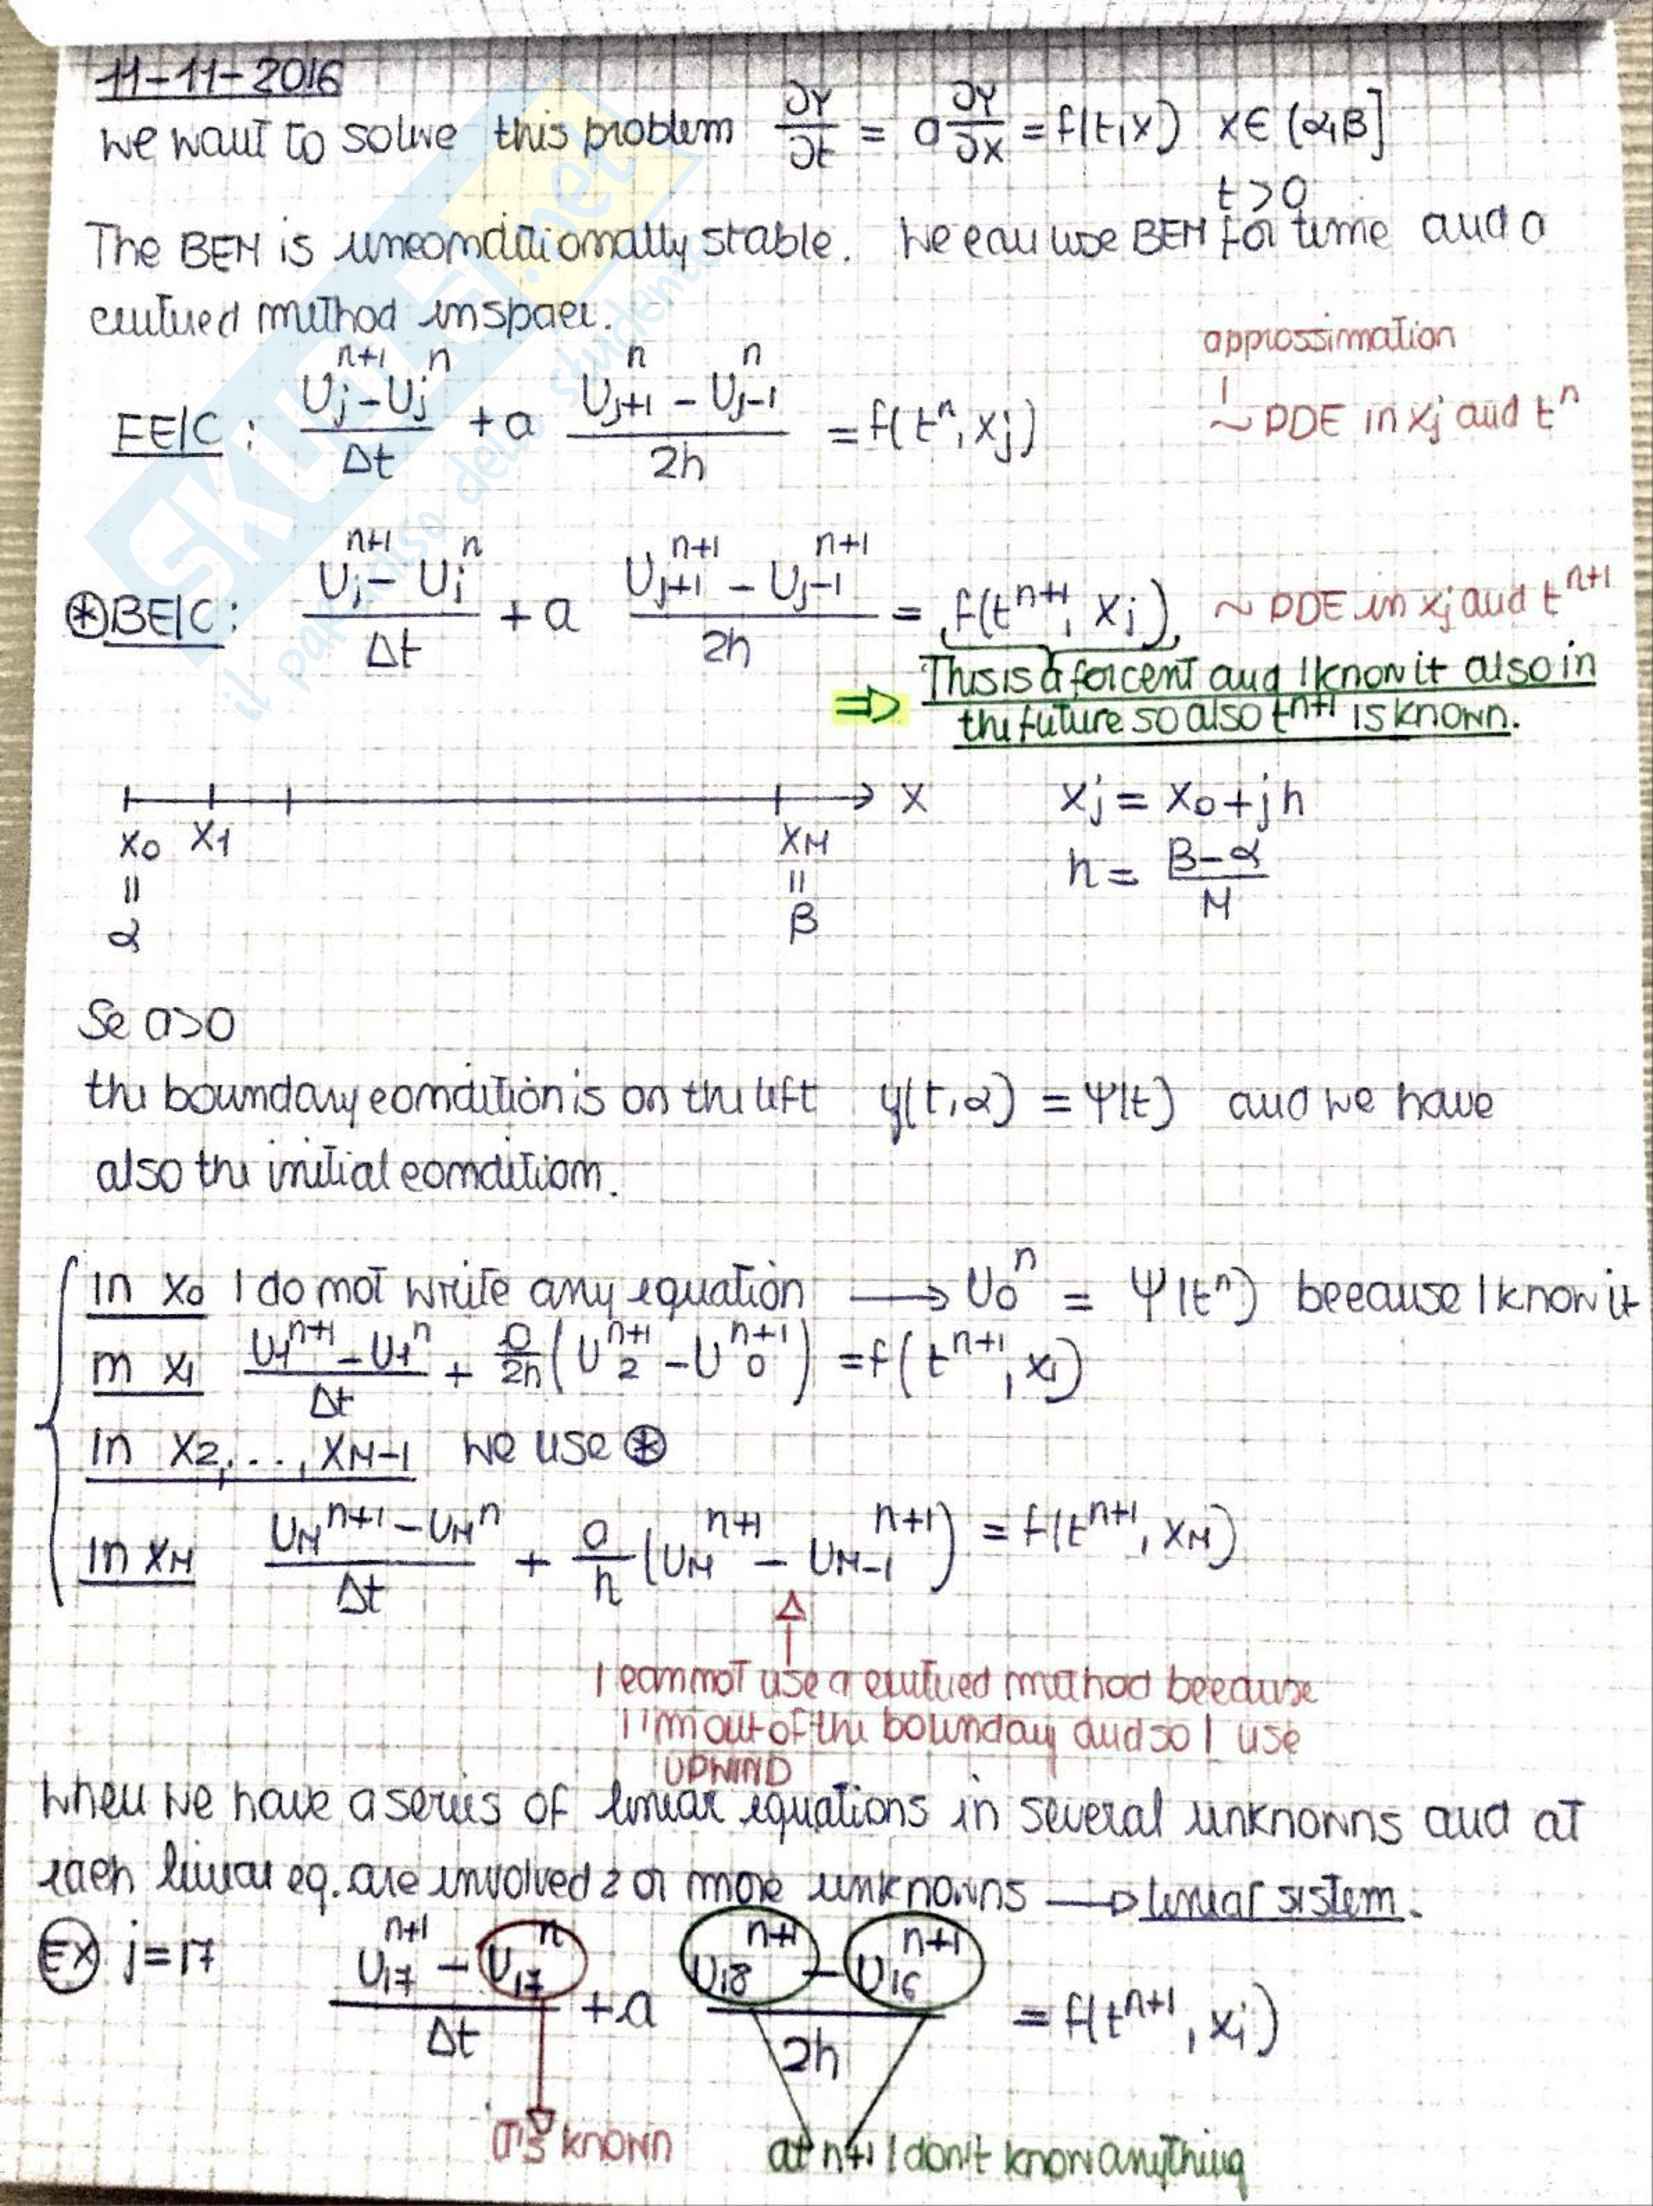 11-11-2016
we want to solve this problem ∂Y/∂t = a ∂Y/∂x = f(t,x) x∈(α,β]
t>0
The BEM is unconditionally stable. We can use BEM for time and a
centered method in space.
approssimation
FE/C: (U_j^{n+1} - U_j^n)/Δt + a (U_{j+1}^n - U_{j-1}^n)/2h = f(t^n, x_j) ~ PDE in x_j and t^n
⊛ BE/C: (U_j^{n+1} - U_j^n)/Δt + a (U_{j+1}^{n+1} - U_{j-1}^{n+1})/2h = f(t^{n+1}, x_j) ~ PDE in x_j and t^{n+1}
⇒ This is a forcent and I know it also in
the future so also t^{n+1} is known.
x x_j = x_0 + jh
x_0 x_1 x_M h = (β-α)/M
= =
α β
Se a>0
the boundary condition is on the left y(t,α) = Ψ(t) and we have
also the initial condition.
in x_0 I do not write any equation → U_0^n = Ψ(t^n) because I know it
in x_1 (U_1^{n+1} - U_1^n)/Δt + a/2h (U_2^{n+1} - U_0^{n+1}) = f(t^{n+1}, x_1)
in x_2, ..., x_{M-1} we use ⊛
in x_M (U_M^{n+1} - U_M^n)/Δt + a/h (U_M^{n+1} - U_{M-1}^{n+1}) = f(t^{n+1}, x_M)
I cannot use a centered method because
I'm out of the boundary and so I use
UPWIND
When we have a series of linear equations in several unknowns and at
each linear eq. are involved 2 or more unknowns → linear sistem.
EX j=17 (U_17^{n+1} - U_17^n)/Δt + a (U_18^{n+1} - U_16^{n+1})/2h = f(t^{n+1}, x_j)
it's known at n+1 I don't know anything
SKUOLA.net
il paradiso dello studente